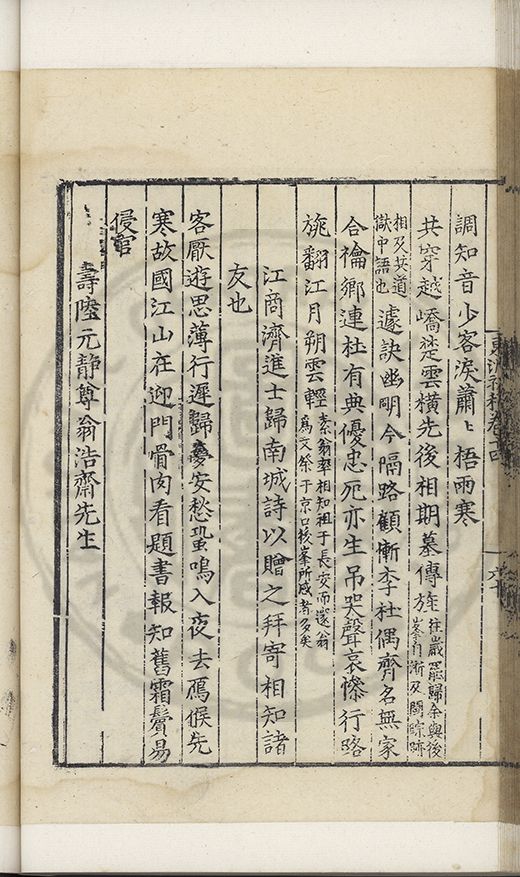 調知音少客淚蕭〻梧雨寒
共穿越嶠楚雲橫先後相期墓傳旌往歲罷歸余與後峯自浙及閩踪跡
相及共道獄中語也遽訣幽明今隔路顧慚李杜偶齊名無家
合禴鄉連杜有典優忠死亦生吊哭聲哀慘行路
旐翻江月朔雲輕素翁率相知祖于長安而邃翁爲文祭于京口後峯所感者多矣
江商濟進士歸南城詩以贈之拜寄相知諸
友也
客厭遊思薄行遲歸夢安愁蛩鳴入夜去鴈候先
寒故國江山在迎門骨肉看題書報知舊霜鬢易
侵官
壽陸元静尊翁浩齋先生
六十